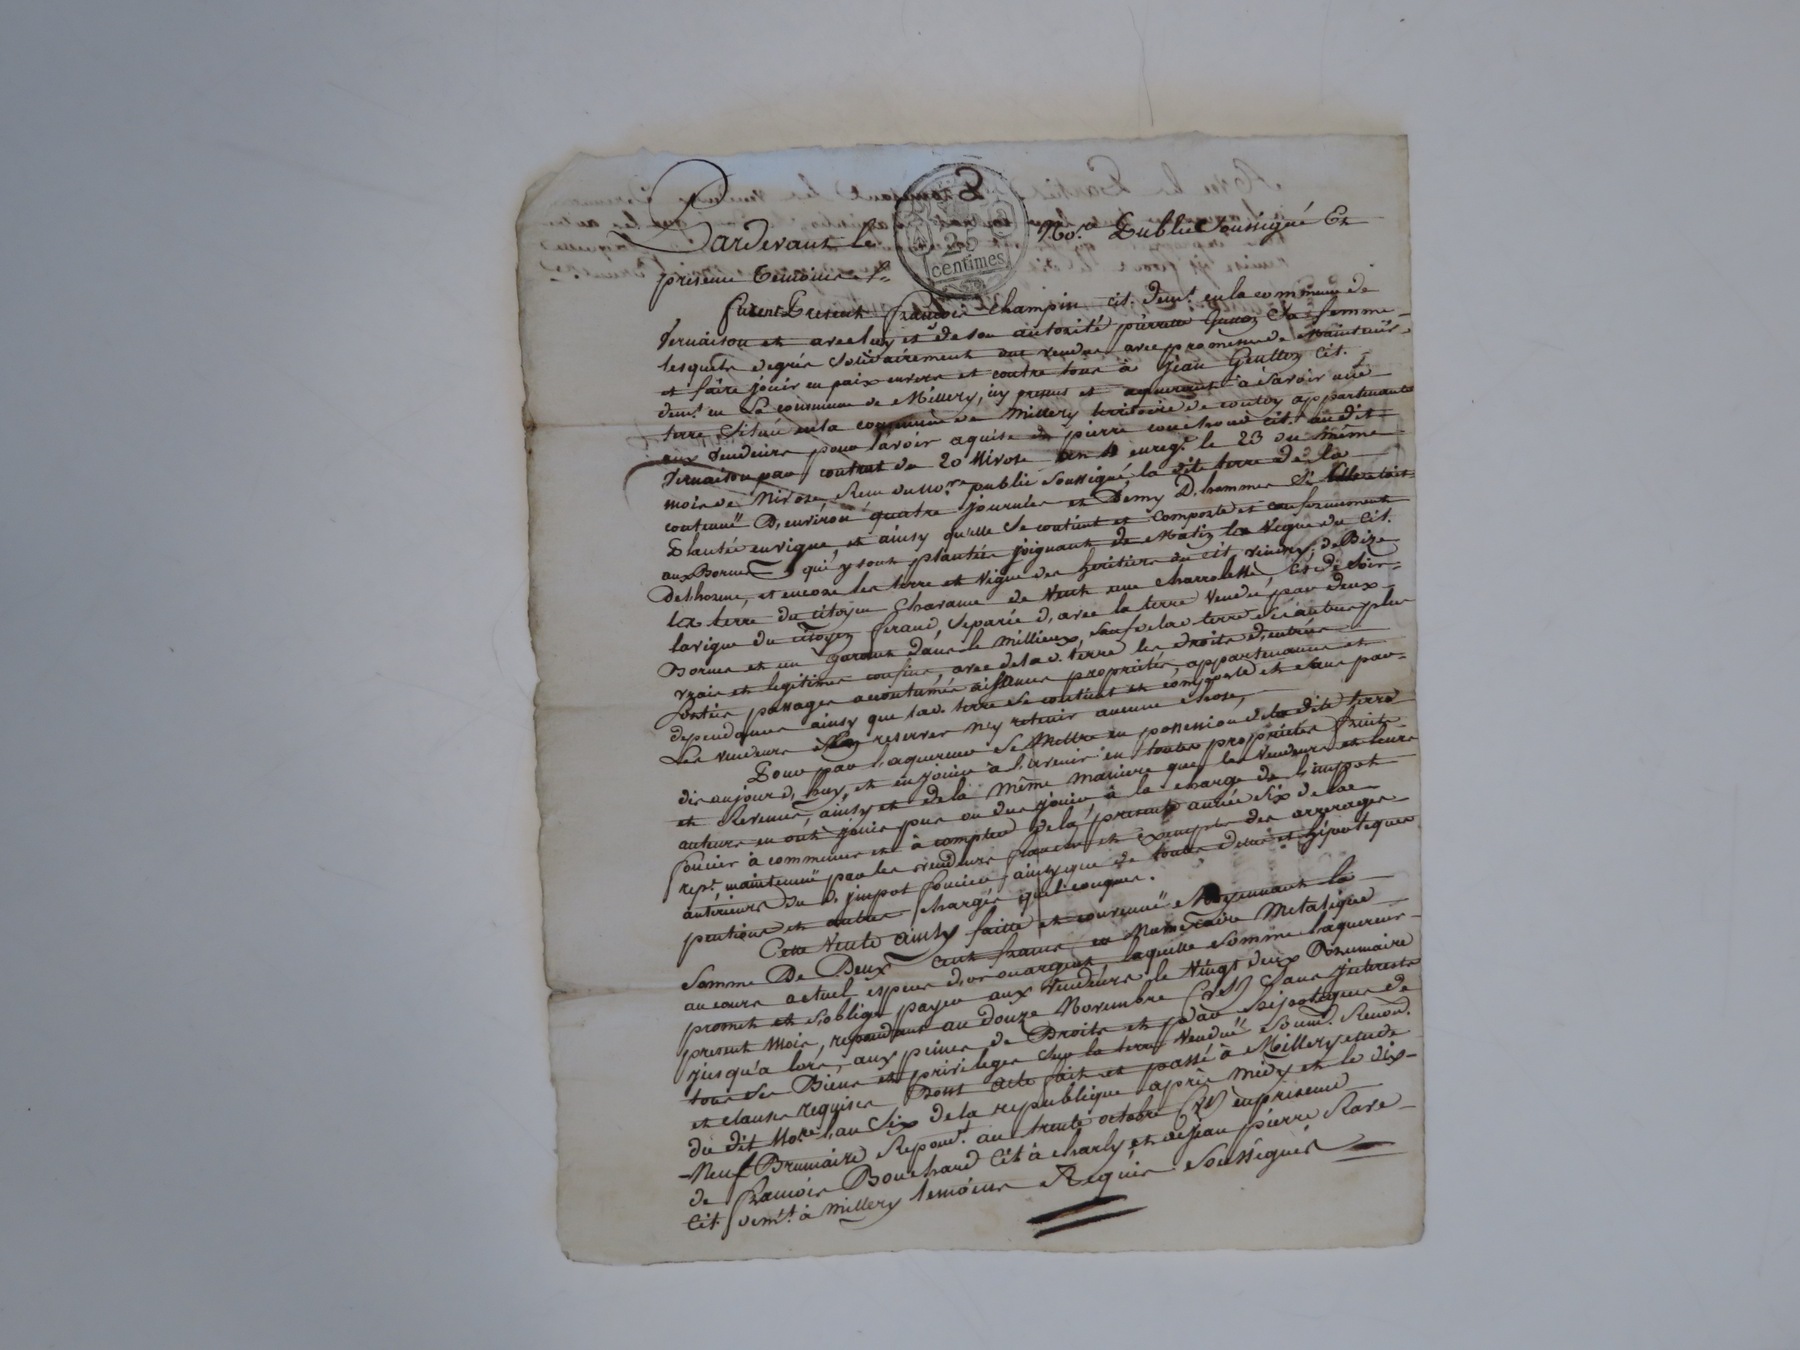 25
centimes
Pardevant le No.re Public Soussigné Et
présence temoins
furent Présent françois Champin cit. dem.t en la commune de
Vernaison et avec luy et de son autorité pierrette Guttos Sa femme
lesquels degrés Solidairement ont vendus avec promesse de Maintenir
et faire jouir en paix envers et contre tous à Jean Geutton Cit.
dem.t en la commune de Millery, icy present et aquerant à Savoir une
terre Située en la commune de Millery territoire de appartenante
aux Vendeurs pour lavoir aquise de pierre couchoud cit. au dit
Vernaison par contrat du 20 Nivose an 4 enreg.e le 23 du même
mois de Nivose Reçu du No.re public Soussigné, la dite terre de la
contenuë D'environ quatre journées et Demy D'hommes
Plantée en vigne, et ainsy qu'elle Se contient et Comporte et conformement
aux Bornes qui y sont plantées joignant de Matin la Vigne du Cit.
Delhorme, et encore les terre et vigne des heritiers du cit. de Bize
la terre du citoyen Charanne de Vent une Charrolette, Et de Soir
la vigne du citoyen feraud, Separée d'avec la terre Vendue par deux
Bornes et un dans le Millieux, Sauf de la terre Ses autres plus
vrais et legitimes confins, avec de la d. terre les Droits d'entrées
Sorties passages accoutumés aisances propriétés, appartenances et
dependances ainsy que la d. terre Se contient et comporte et Sans par
Les vendeurs S'en reserver N'y retenir aucune chose,
Pour par l'aquereur Se Mettre en possession de la dite terre
dis aujourd'huy, et en jouir à l'avenir en toutes propriétés fruits
et Revenus, ainsy et de la même maniere que les Vendeurs et leurs
auteurs en ont jouis pus ou dus jouir à la charge de l'impot
foncier à commencer et à compter de la presente année Six de la
rep.e maintenuë par les vendeurs franche et exempte des arrerages
anterieurs du d. impot foncier ainsy que de toutes dettes et hipoteques
pentions et autres charges quelconques.
Cette Vente ainsy faitte et convenuë Moyennant la
Somme De Deux cent francs en Numeraire Metalique
au cours actuel especes d'or ou argent, laquelle Somme l'aquereur
promet et S'oblige payer aux Vendeurs le Vingt deux Brumaire
present Mois, repondant au douze Novembre (VS) Sans interets
jusqu'a lors, aux peines de Droits et par hipoteques de
tous Ses Biens et privileges Sur la terre Venduë Soum. Renon.
et clauses requises Dont acte fait et passé à Millery etude
du dit No.re l'an Six de la republique après midy et le dix
Neuf Brumaire Repon.t au trente octobre (VS) en presence
de françois Bouchard Cit à Charly, et de Jean pierre Rave
Cit dem.t à Millery temoins Requis Soussignés